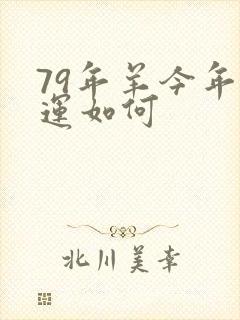 79年羊今年
運如何
北川美幸